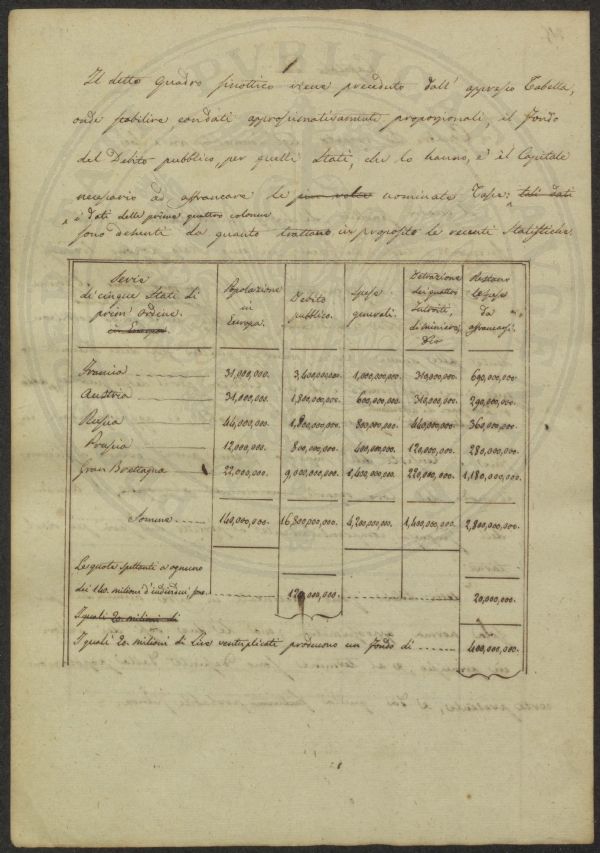 1
Il detto Quadro sinottico viene preceduto dall' appresso Tabella,
onde stabilire, con dati approssimativamente proporzionali, il fondo
del Debito pubblico, per quelli Stati, che lo hanno, e il Capitale
necessario ad affrancare le nominate Tasse: tali dati
e dati delle prime quattro colonne
sono desunti da quanto trattano in proposito le recenti Statistiche.
Serie di cinque Stati di prim' ordine. in Europa. | Popolazione in Europa. | Debito pubblico. | Spese generali. | Detrazione dei quattro Introiti, di minore | Restano da affrancarsi.
Francia | 31,000,000. | 3,400,000,000. | 1,000,000,000. | 310,000,000. | 690,000,000.
Austria | 31,000,000. | 1,800,000,000. | 600,000,000. | 310,000,000. | 290,000,000.
Russia | 44,000,000. | 1,800,000,000. | 800,000,000. | 440,000,000. | 360,000,000.
Prussia | 12,000,000. | 800,000,000. | 400,000,000. | 120,000,000. | 280,000,000.
Gran Brettagna | 22,000,000. | 9,000,000,000. | 1,400,000,000. | 220,000,000. | 1,180,000,000.
Somme | 140,000,000. | 16,800,000,000. | 4,200,000,000. | 1,400,000,000. | 2,800,000,000.
Le quote spettanti a ognuno
dei 140. milioni d'individui sono | 120,000,000. | 20,000,000.
I quali 20. milioni di
I quali 20. milioni di Lire ventuplicate producono un fondo di | 400,000,000.